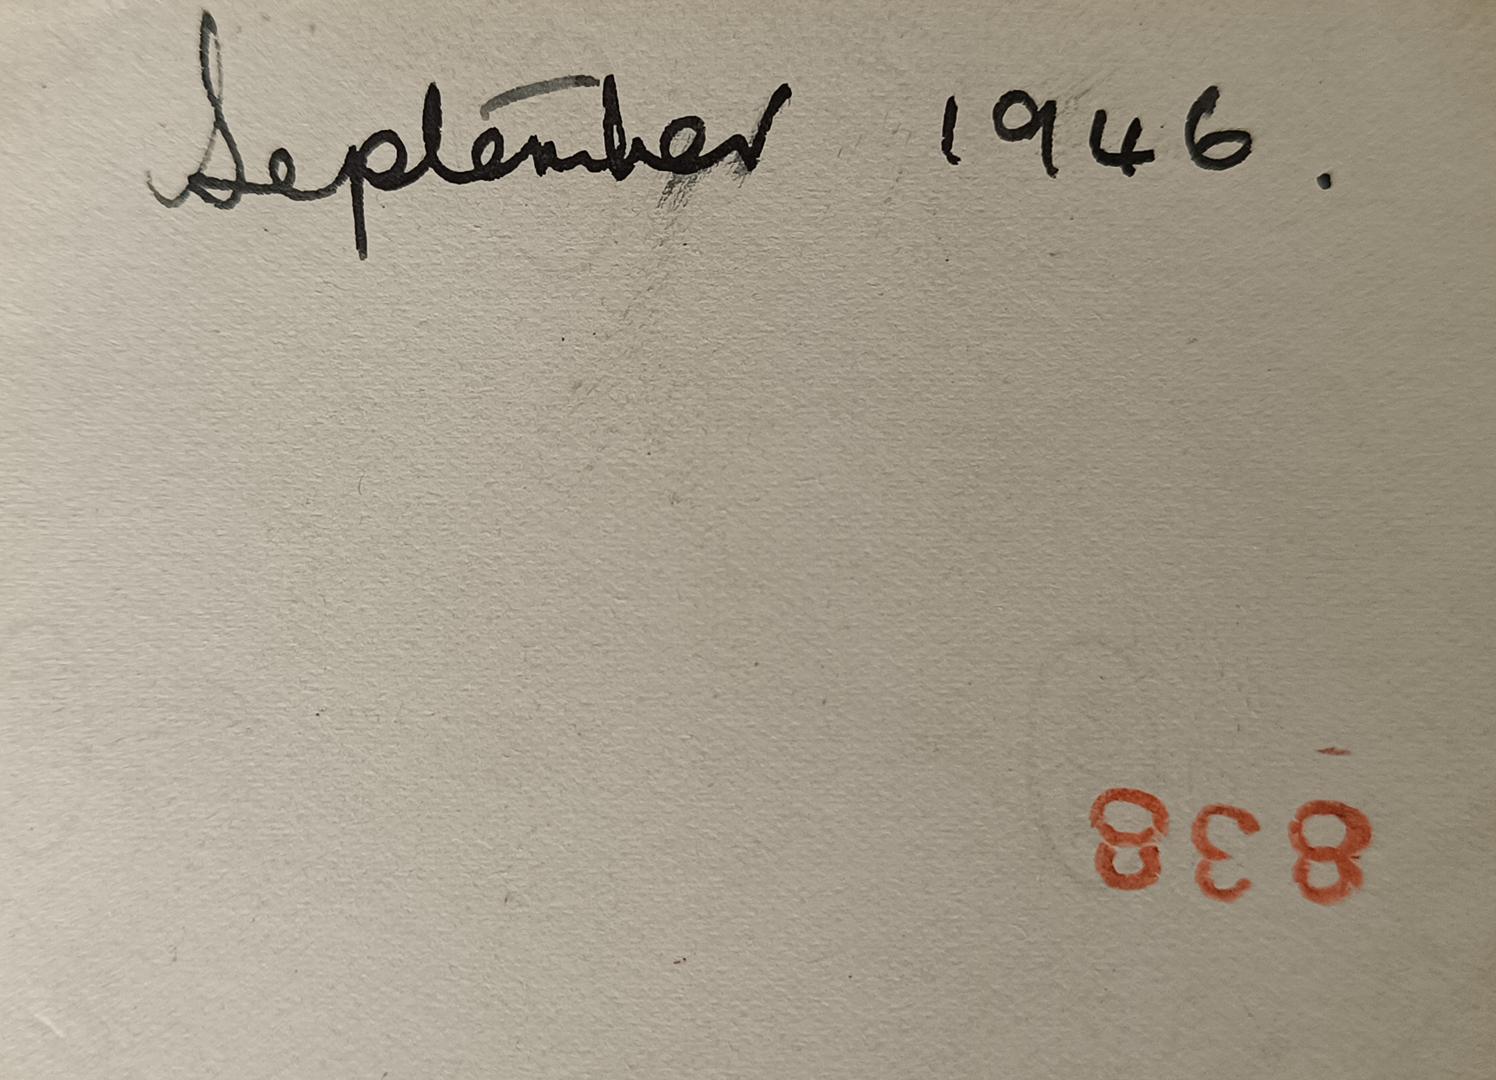 September 1946.
838